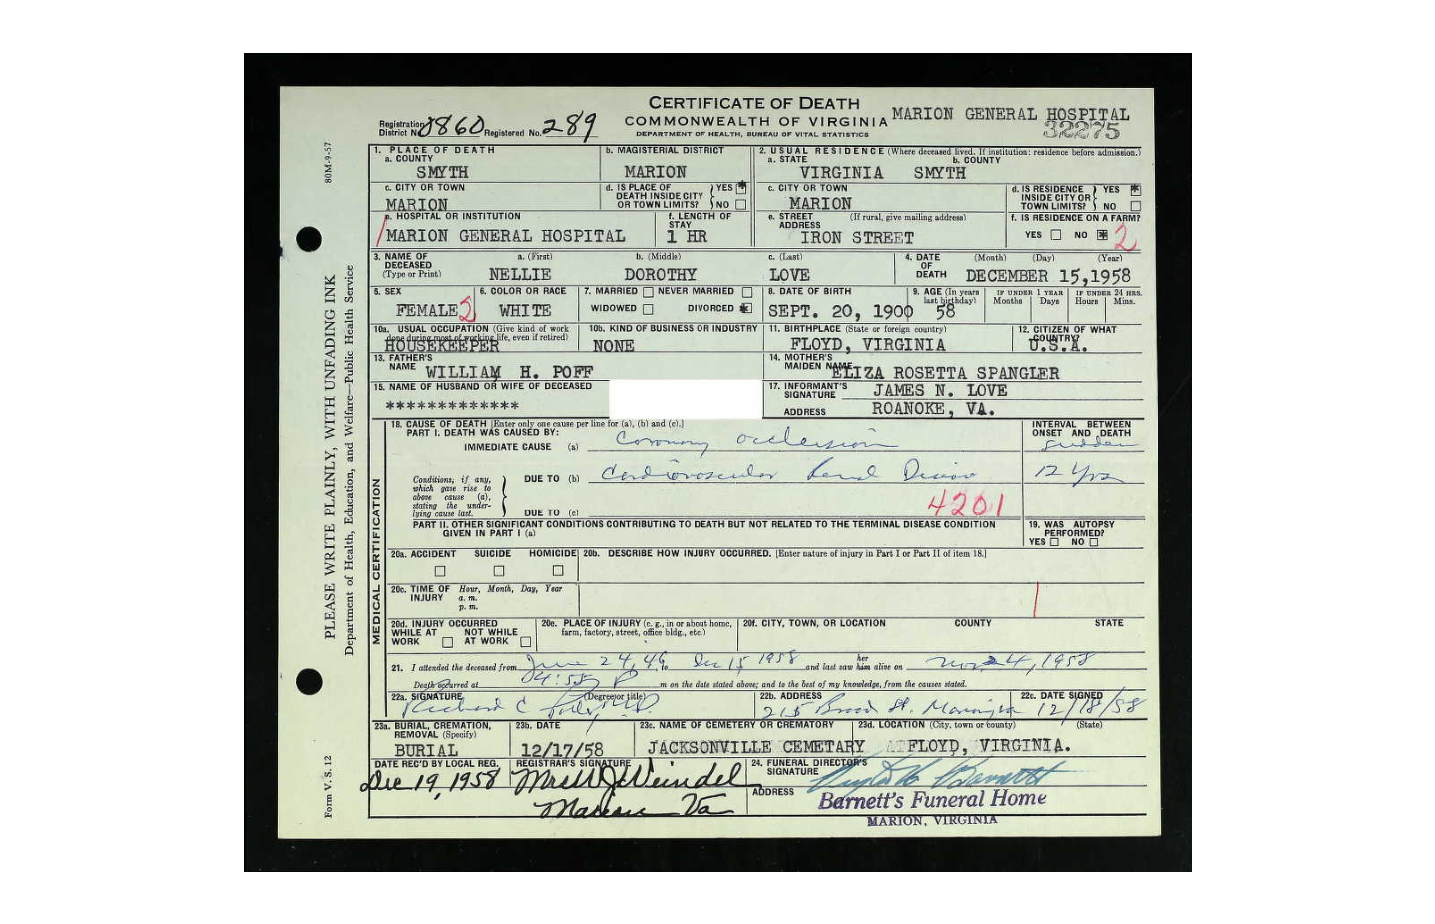 CERTIFICATE OF DEATH
COMMONWEALTH OF VIRGINIA
DEPARTMENT OF HEALTH, BUREAU OF VITAL STATISTICS
MARION GENERAL HOSPITAL
32275
Registration District No. 0860 Registered No. 289
80M-9-57
PLEASE WRITE PLAINLY, WITH UNFADING INK
Department of Health, Education, and Welfare—Public Health Service
Form V. S. 12
1. PLACE OF DEATH
a. COUNTY
SMYTH
b. MAGISTERIAL DISTRICT
MARION
2. USUAL RESIDENCE (Where deceased lived. If institution: residence before admission.)
a. STATE b. COUNTY
VIRGINIA SMYTH
c. CITY OR TOWN
MARION
d. IS PLACE OF DEATH INSIDE CITY OR TOWN LIMITS? YES NO
c. CITY OR TOWN
MARION
d. IS RESIDENCE INSIDE CITY OR TOWN LIMITS? YES NO
e. HOSPITAL OR INSTITUTION
MARION GENERAL HOSPITAL
f. LENGTH OF STAY
1 HR
e. STREET ADDRESS (If rural, give mailing address)
IRON STREET
f. IS RESIDENCE ON A FARM?
YES NO 2
3. NAME OF DECEASED (Type or Print)
a. (First) b. (Middle) c. (Last)
NELLIE DOROTHY LOVE
4. DATE OF DEATH (Month) (Day) (Year)
DECEMBER 15,1958
5. SEX
FEMALE 2
6. COLOR OR RACE
WHITE
7. MARRIED NEVER MARRIED
WIDOWED DIVORCED
8. DATE OF BIRTH
SEPT. 20, 1900
9. AGE (In years last birthday)
58
IF UNDER 1 YEAR Months Days
IF UNDER 24 HRS. Hours Mins.
10a. USUAL OCCUPATION (Give kind of work done during most of working life, even if retired)
HOUSEKEEPER
10b. KIND OF BUSINESS OR INDUSTRY
NONE
11. BIRTHPLACE (State or foreign country)
FLOYD, VIRGINIA
12. CITIZEN OF WHAT COUNTRY?
U.S.A.
13. FATHER'S NAME
WILLIAM H. POFF
14. MOTHER'S MAIDEN NAME
ELIZA ROSETTA SPANGLER
15. NAME OF HUSBAND OR WIFE OF DECEASED
*************
17. INFORMANT'S SIGNATURE JAMES N. LOVE
ADDRESS ROANOKE, VA.
MEDICAL CERTIFICATION
18. CAUSE OF DEATH [Enter only one cause per line for (a), (b) and (c).]
PART I. DEATH WAS CAUSED BY:
IMMEDIATE CAUSE (a) Coronary occlusion
INTERVAL BETWEEN ONSET AND DEATH
sudden
Conditions, if any, which gave rise to above cause (a), stating the underlying cause last.
DUE TO (b) Cardiovascular Renal Disease 12 Yrs
DUE TO (c)
4201
PART II. OTHER SIGNIFICANT CONDITIONS CONTRIBUTING TO DEATH BUT NOT RELATED TO THE TERMINAL DISEASE CONDITION GIVEN IN PART I (a)
19. WAS AUTOPSY PERFORMED?
YES NO
20a. ACCIDENT SUICIDE HOMICIDE
20b. DESCRIBE HOW INJURY OCCURRED. [Enter nature of injury in Part I or Part II of item 18.]
20c. TIME OF INJURY Hour, Month, Day, Year
a. m.
p. m.
20d. INJURY OCCURRED
WHILE AT WORK NOT WHILE AT WORK
20e. PLACE OF INJURY (e. g., in or about home, farm, factory, street, office bldg., etc.)
20f. CITY, TOWN, OR LOCATION COUNTY STATE
21. I attended the deceased from June 24, 46, to Dec 15 1958 and last saw her him alive on Nov 24, 1958
Death occurred at m on the date stated above; and to the best of my knowledge, from the causes stated.
22a. SIGNATURE (Degree or title)
Richard C M.D.
22b. ADDRESS
215 Broad St. Marion, Va
22c. DATE SIGNED
12/18/58
23a. BURIAL, CREMATION, REMOVAL (Specify)
BURIAL
23b. DATE
12/17/58
23c. NAME OF CEMETERY OR CREMATORY
JACKSONVILLE CEMETARY
23d. LOCATION (City, town or county) (State)
FLOYD, VIRGINIA.
DATE REC'D BY LOCAL REG.
Dec 19, 1958
REGISTRAR'S SIGNATURE
Marion Va
24. FUNERAL DIRECTOR'S SIGNATURE
Barnett
ADDRESS
Barnett's Funeral Home
MARION, VIRGINIA